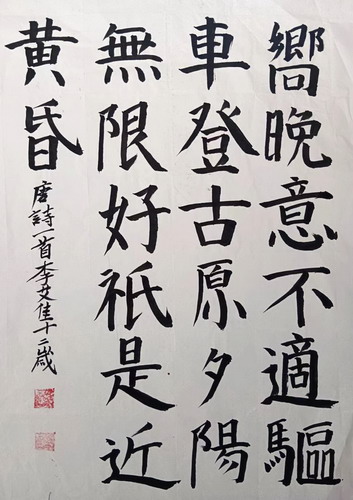 嚮晚意不適驅
車登古原夕陽
無限好祇是近
黃昏
唐詩一首李艾佳十二歲